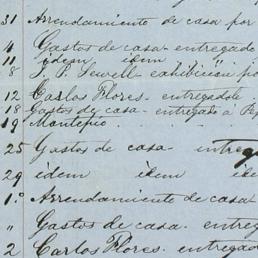 31 Arrendamiento de casa por
4 Gastos de casa - entregado
11 idem idem
8 J. S. Sewell - exhibicion po
12 Carlos Flores - entregadole
18 Gastos de casa - entregado á Pep
19 Montepio
25 Gastos de casa - entreg
29 idem idem ide
1.º Arrendamiento de casa
" Gastos de casa. entreg
2 Carlos Flores. entregado